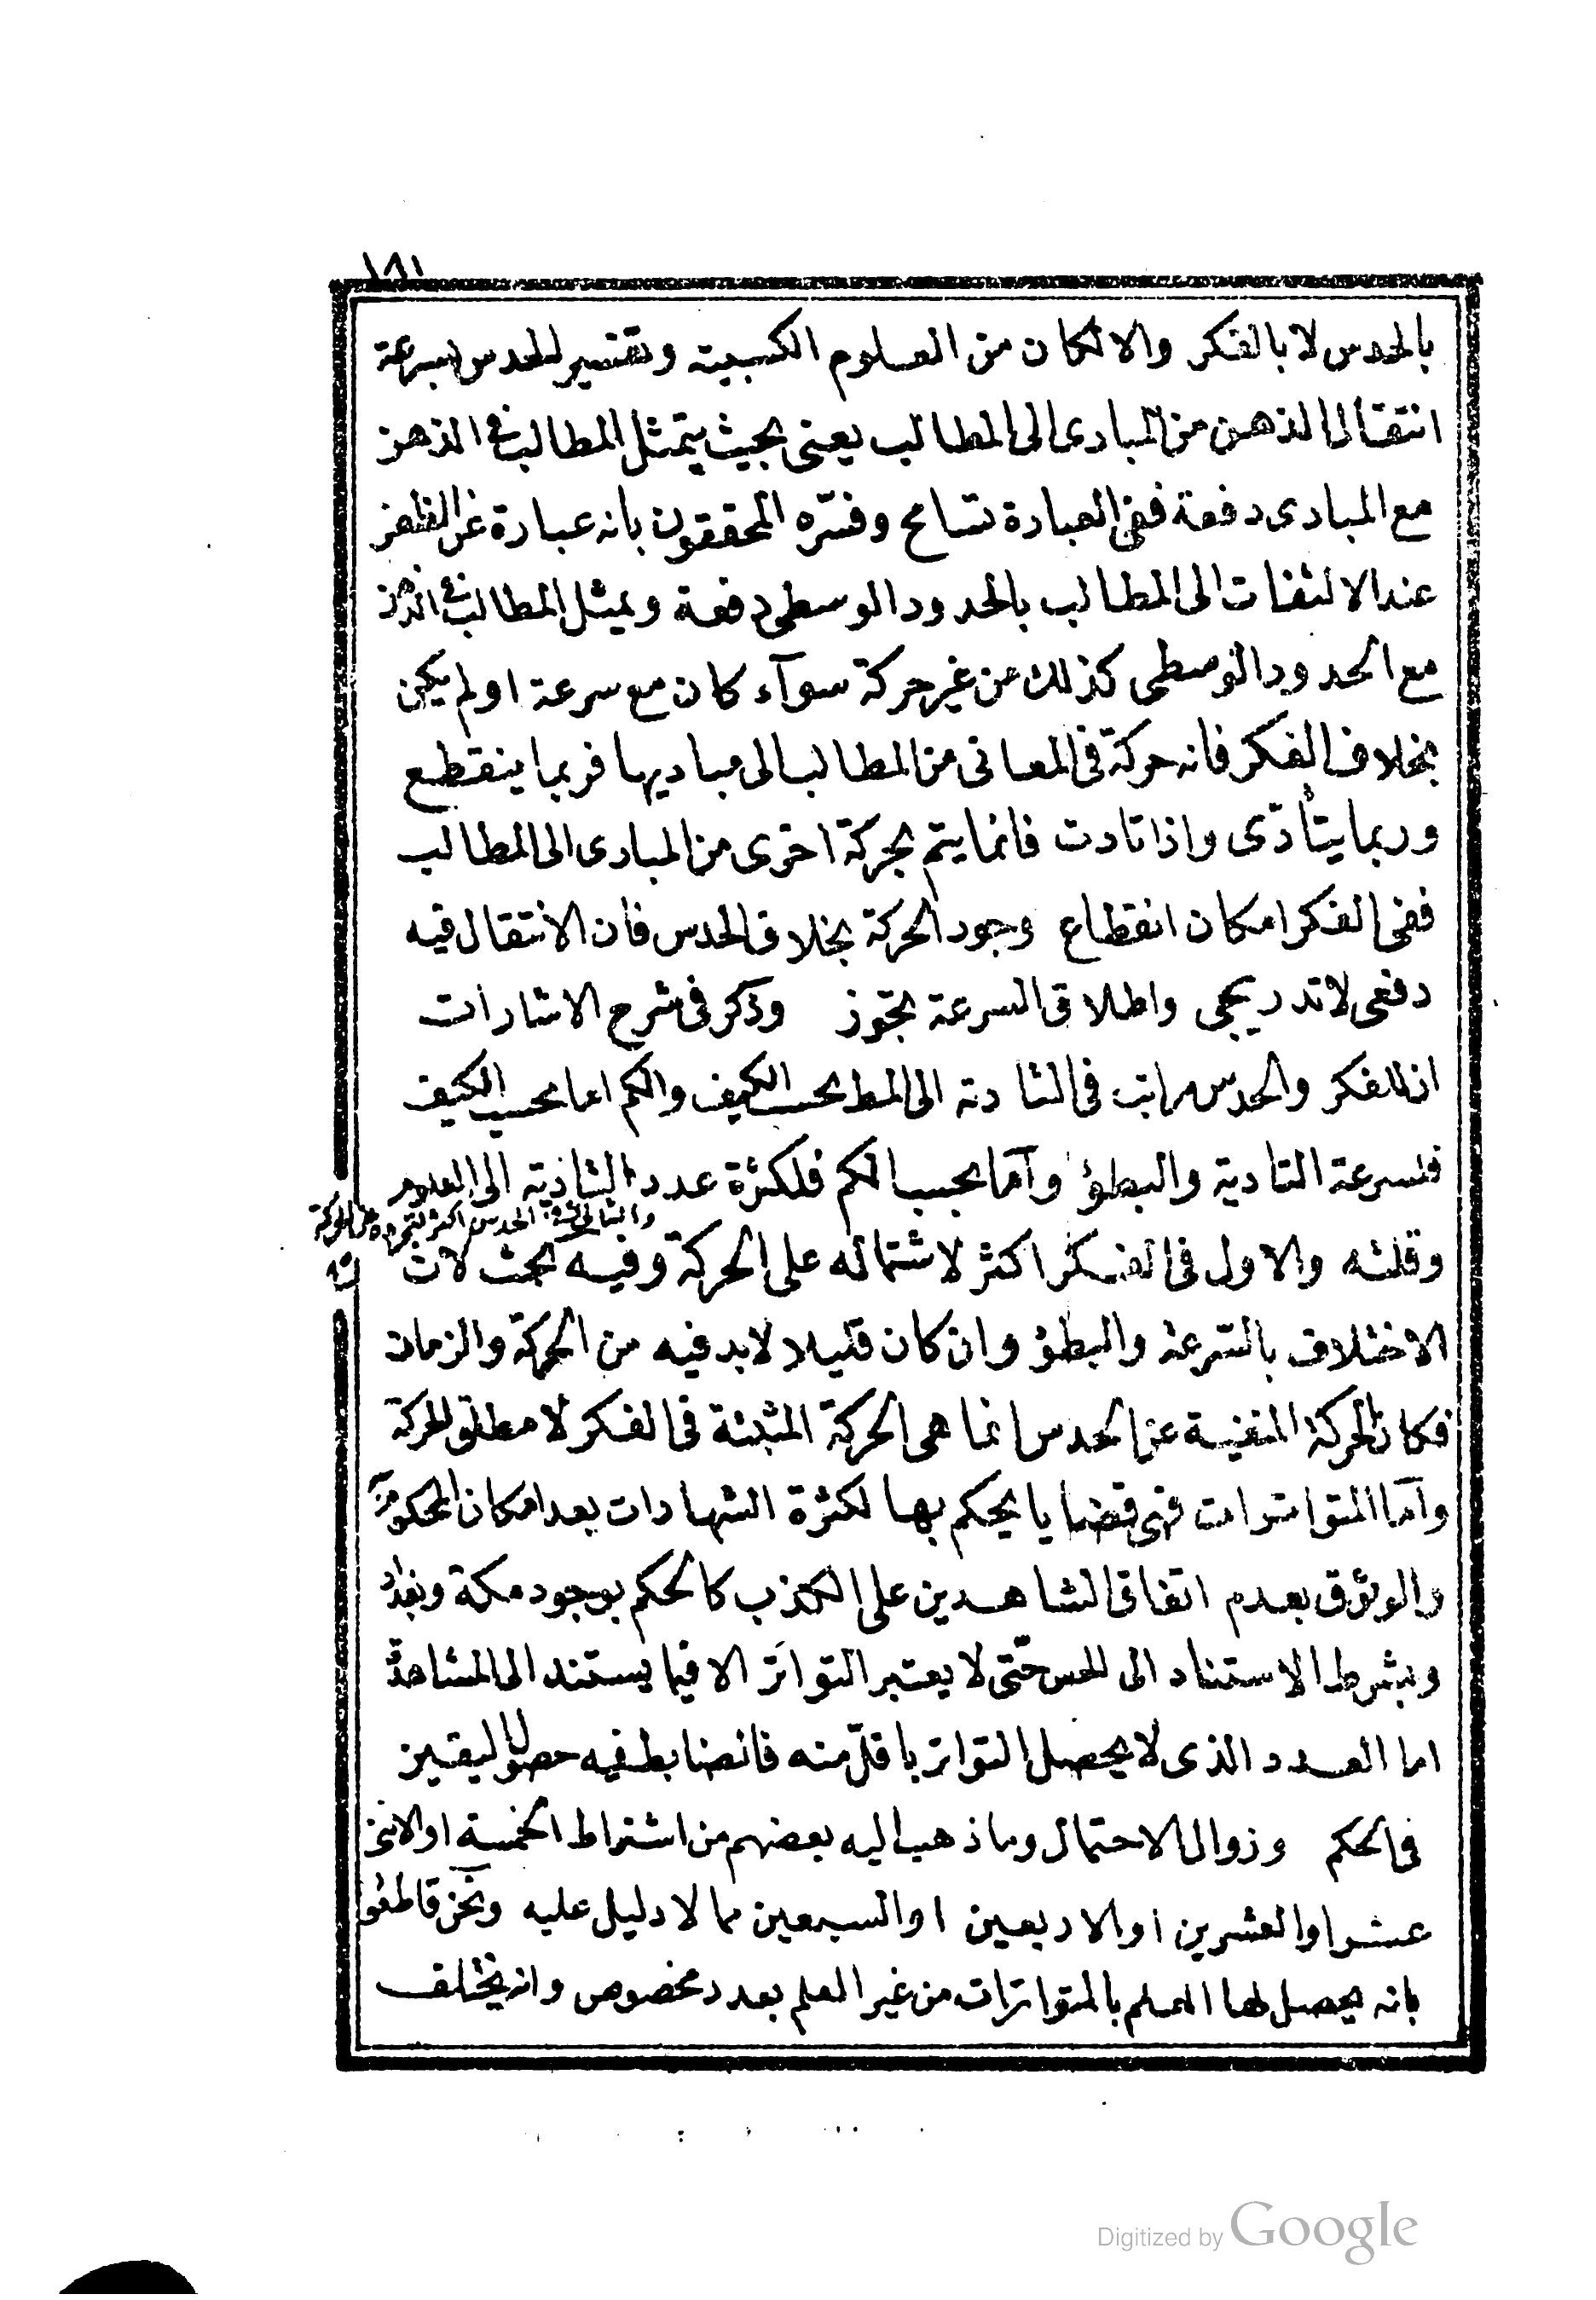 ١٨١
بالحدس لا بالفكر والا لكان من العلوم الكسبيته وتفسير للحدس بسرعة
انتقال الذهن من المبادى الى المطالب يعنى بحيث يتمثل المطالب فى الذهن
مع المبادى دفعة ففى العبادة تسامح وفسّره المحققون بانه عبارة عن الظفر
عند الالتفات الى المطالب بالحدود الوسطى دفعة وتمثل المطالب فى الذهن
مع الحدود الوسطى كذلك من غير حركة سوآء كان مع سرعة او لم يكن
بخلاف الفكر فانه حركة فى المعانى من المطالب الى مباديها فربما ينقطع
وربما يتأدّى واذا تادت فانما يتم بحركة اخرى من المبادى الى المطالب
ففى الفكر امكان انقطاع وجود الحركة بخلاف الحدس فان الانتقال فيه
دفعى لا تدريجى واطلاق السرعة تجوّز وذكر فى شرح الاشارات
ان للفكر والحدس مراتب فى التادته الى المط بحسب الكيف والكم اما بحسب الكيف
فلسرعة التادية والبطؤ وآما بحسب الكم فلكثرة عدد التاذية الى العلوم
والثانى فى الحدس اكثر لتجرده عن الحركة
وقلته والاول فى الفكر اكثر لاشتماله على الحركة وفيه بحث لان
الاختلاف بالسّرعة والبطؤ وان كان قليلا لا بد فيه من الحركة والزمان
فكان الحركة المنفية عن الحدس انما هى الحركة المثبتة فى الفكر لا مطلق الحركة
وآما المتواترات فهى قضايا يحكم بها لكثرة الشهادات بعد امكان المحكوم به
والوثوق بعدم اتفاق الشاهدين على الكذب كالحكم بوجود مكة وبغداد
وبشرط الاستناد الى الحس حتّى لا يعتبر التواتر الا فيما يستند الى المشاهدة
اما العدد الذى لا يحصل التواتر باقلّ منه فالضابط فيه حصول اليقين
فى الحكم وزوال الاحتمال وما ذهب اليه بعضهم من اشتراط الخمسة او الاثنى
عشر او العشرين او الاربعين او السبعين مما لا دليل عليه ونحن قاطعون
بانه يحصل لها العلم بالمتواترات من غير العلم بعدد مخصوص وانه يختلف
Digitized by Google